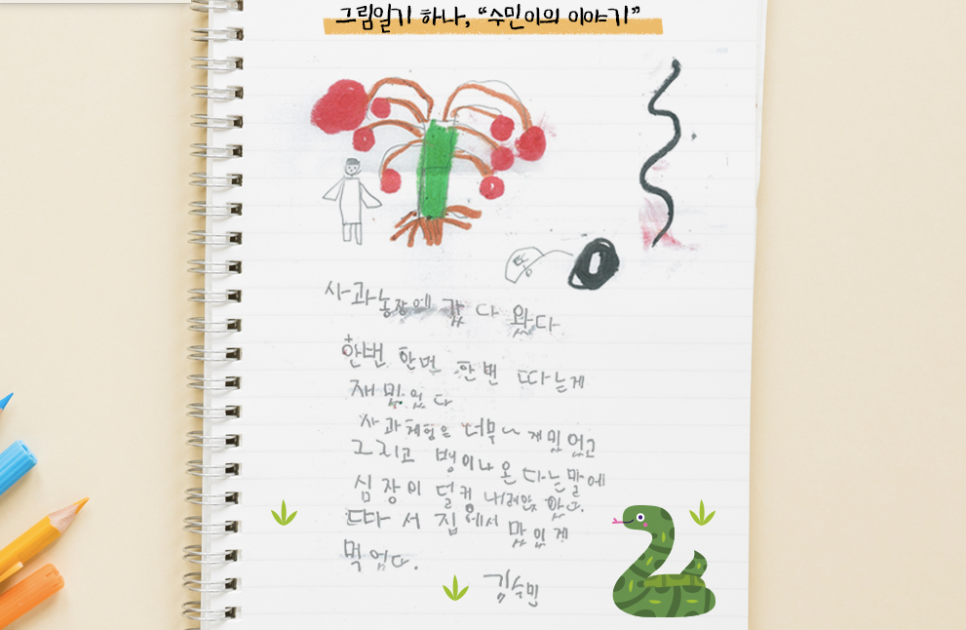 그림일기 하나, “수민이의 이야기”
사과농장에 갔다 왔다
한번 한번 한번 따는게
재밌었다
사과체험은 너무나 재밌었고
그리고 뱀이 나온다는말에
심장이 덜컹 내려앉았다.
따서 집에서 맛있게
먹었다.
김수민